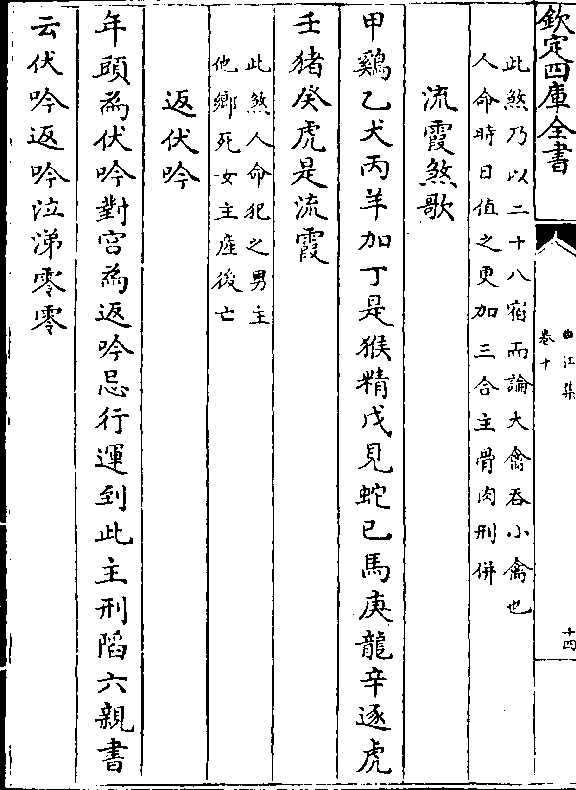 欽定四庫全書
曲江集
卷十
十四
此煞乃以二十八宿而論大禽吞小禽也
人命時日值之更加三合主骨肉刑併
流霞煞歌
甲鷄乙犬丙羊加丁是猴精戊見蛇已馬庚龍辛逐虎
壬猪癸虎是流霞
此煞人命犯之男主
他鄉死女主產後亡
返伏吟
年頭為伏吟對宮為返吟忌行運到此主刑陷六親書
云伏吟返吟泣涕零零